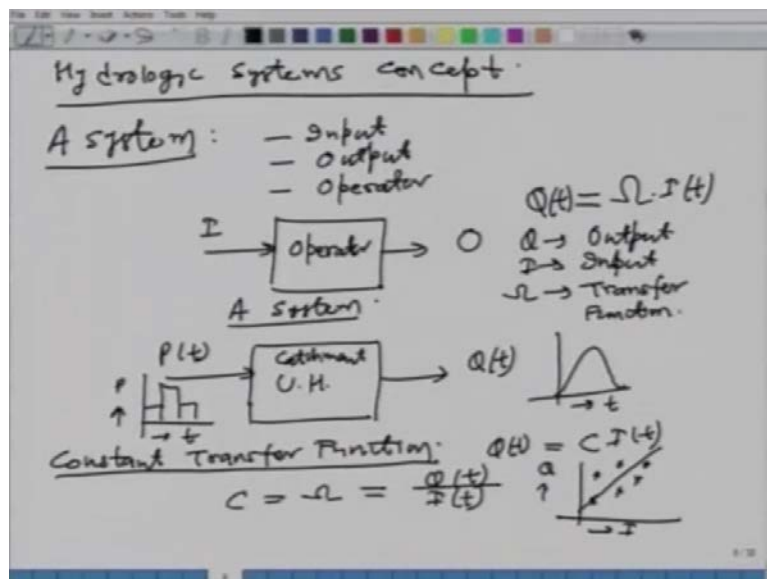 File Edit View Insert Actions Tools Help
Hydrologic Systems Concept.
A System: — Input
— Output
— Operator
Q(t) = Ω. I(t)
I Operator O
Q → Output
I → Input
Ω → Transfer Function.
A System.
P(t) Catchment U.H. Q(t)
P → t
→ t
Constant Transfer Function.
Q(t) = C I(t)
C = Ω = Q(t) / I(t)
Q → I